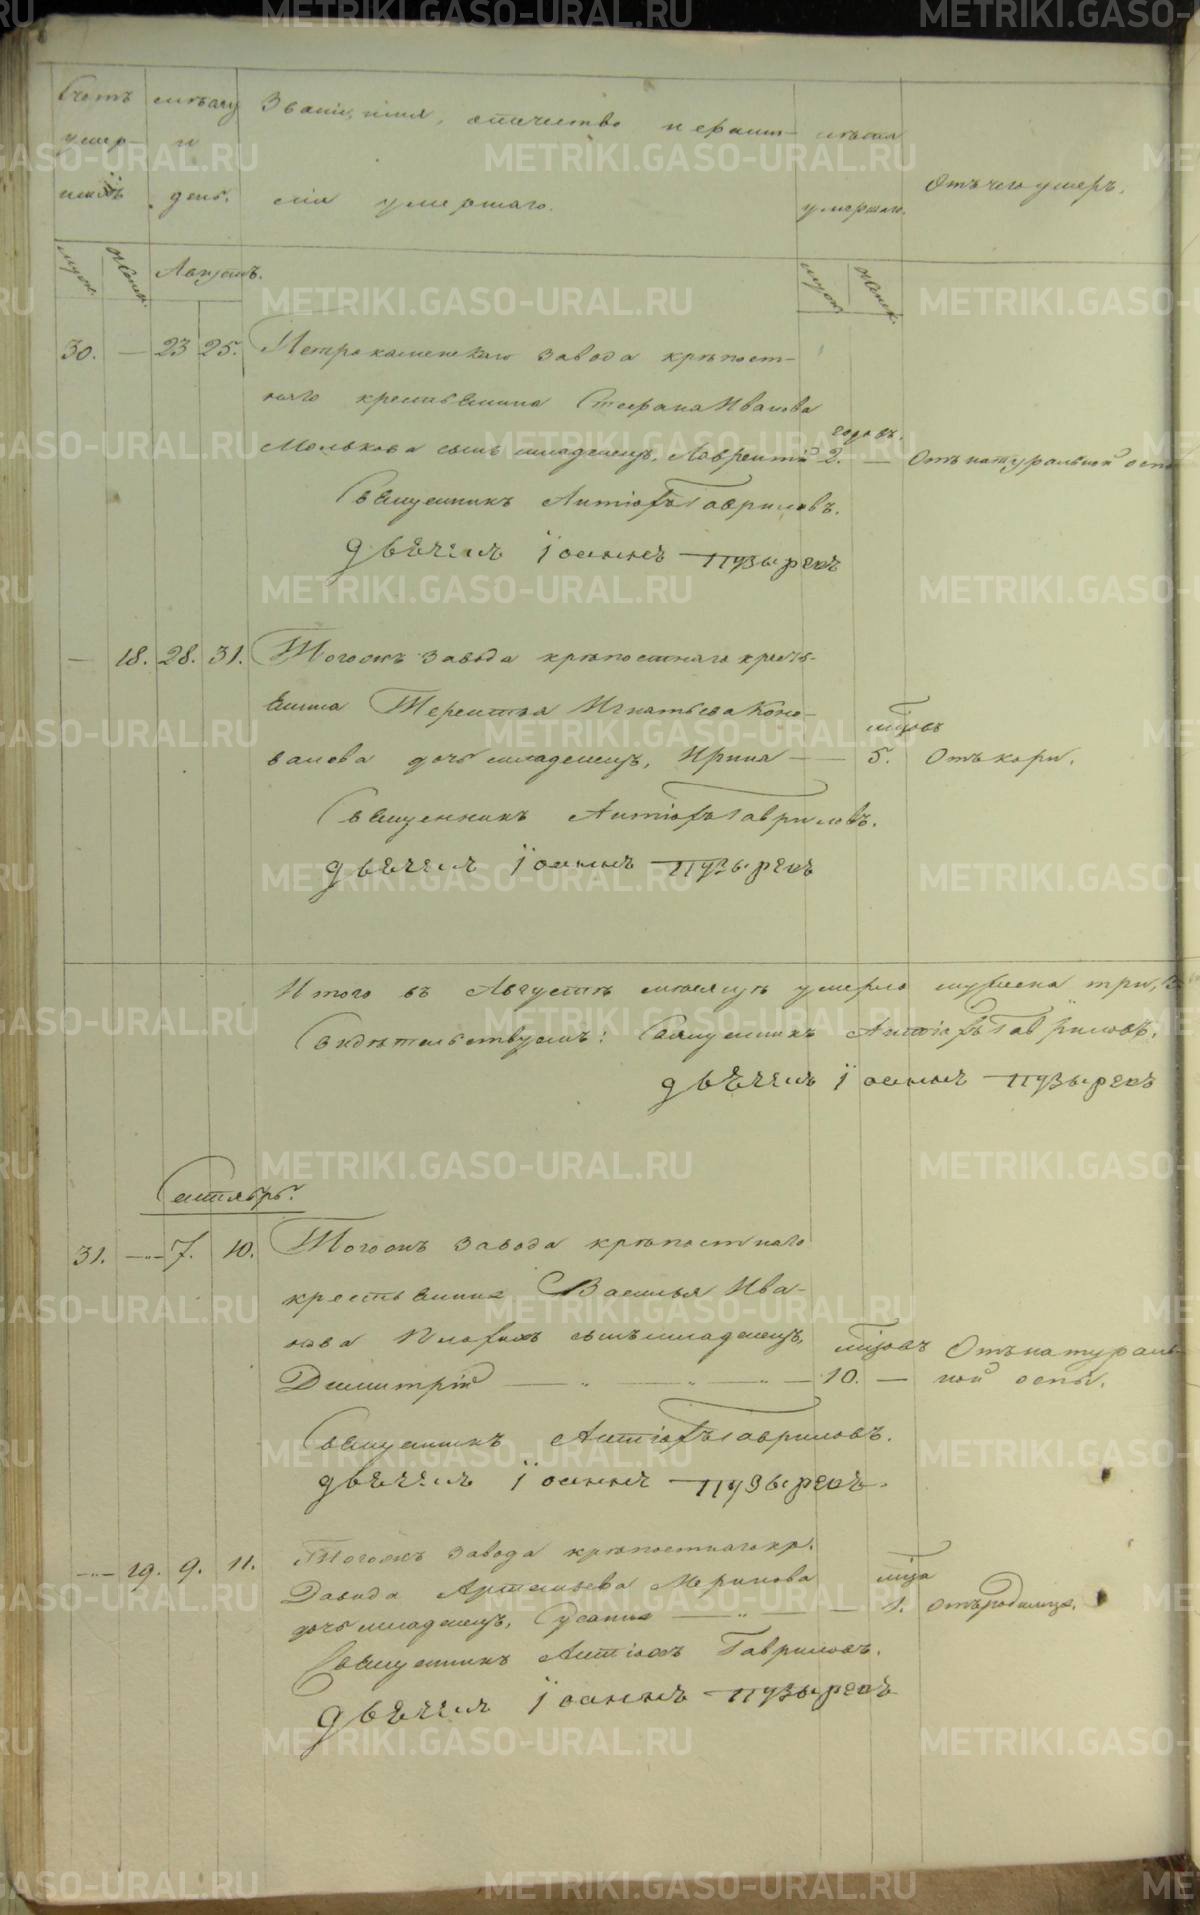 Счетъ мѣсяцъ Званіе, имя, отчество и фамил- лѣта
умер- и
шихъ день. лія умершаго. умершаго. Отъ чего умеръ.
муж. женск. Августъ. муж. женск.
30. — 23 25. Петрокаменскаго завода крѣпост-
наго крестьянина Стефана Иванова
годовъ.
сынъ младенецъ, Лаврентій 2. — Отъ натуральной осп
Священникъ Антіохъ Гавриловъ.
дьячекъ Іоаннъ Пузырев
— 18. 28. 31. Тогожъ завода крѣпостнаго кресть-
янина Терентья Игнатьева Коно-
мѣсяцовъ
валова дочь младенецъ, Ирина — — 5. Отъ кори.
Священникъ Антіохъ Гавриловъ.
дьячекъ Іоаннъ Пузырев
Итого въ Августѣ мѣсяцѣ умерло мужеска три,
Свидѣтельствуемъ: Священникъ Антіохъ Гавриловъ.
дьячекъ Іоаннъ Пузыревъ
Сентябрь.
31. — 7. 10. Тогожъ завода крѣпостнаго
крестьянина Василья Ива-
нова сынъ младенецъ, мѣсяцовъ Отъ натураль-
Димитрій — — — — 10. — ной оспы.
Священникъ Антіохъ Гавриловъ.
дьячекъ Іоаннъ Пузыревъ.
— 19. 9. 11. Тогожъ завода крѣпостнаго кр.
Давида Артемьева мѣсяца
дочь младенецъ, Сусанна — — — 1. Отъ родимца.
Священникъ Антіохъ Гавриловъ.
дьячекъ Іоаннъ Пузыревъ
METRIKI.GASO-URAL.RU